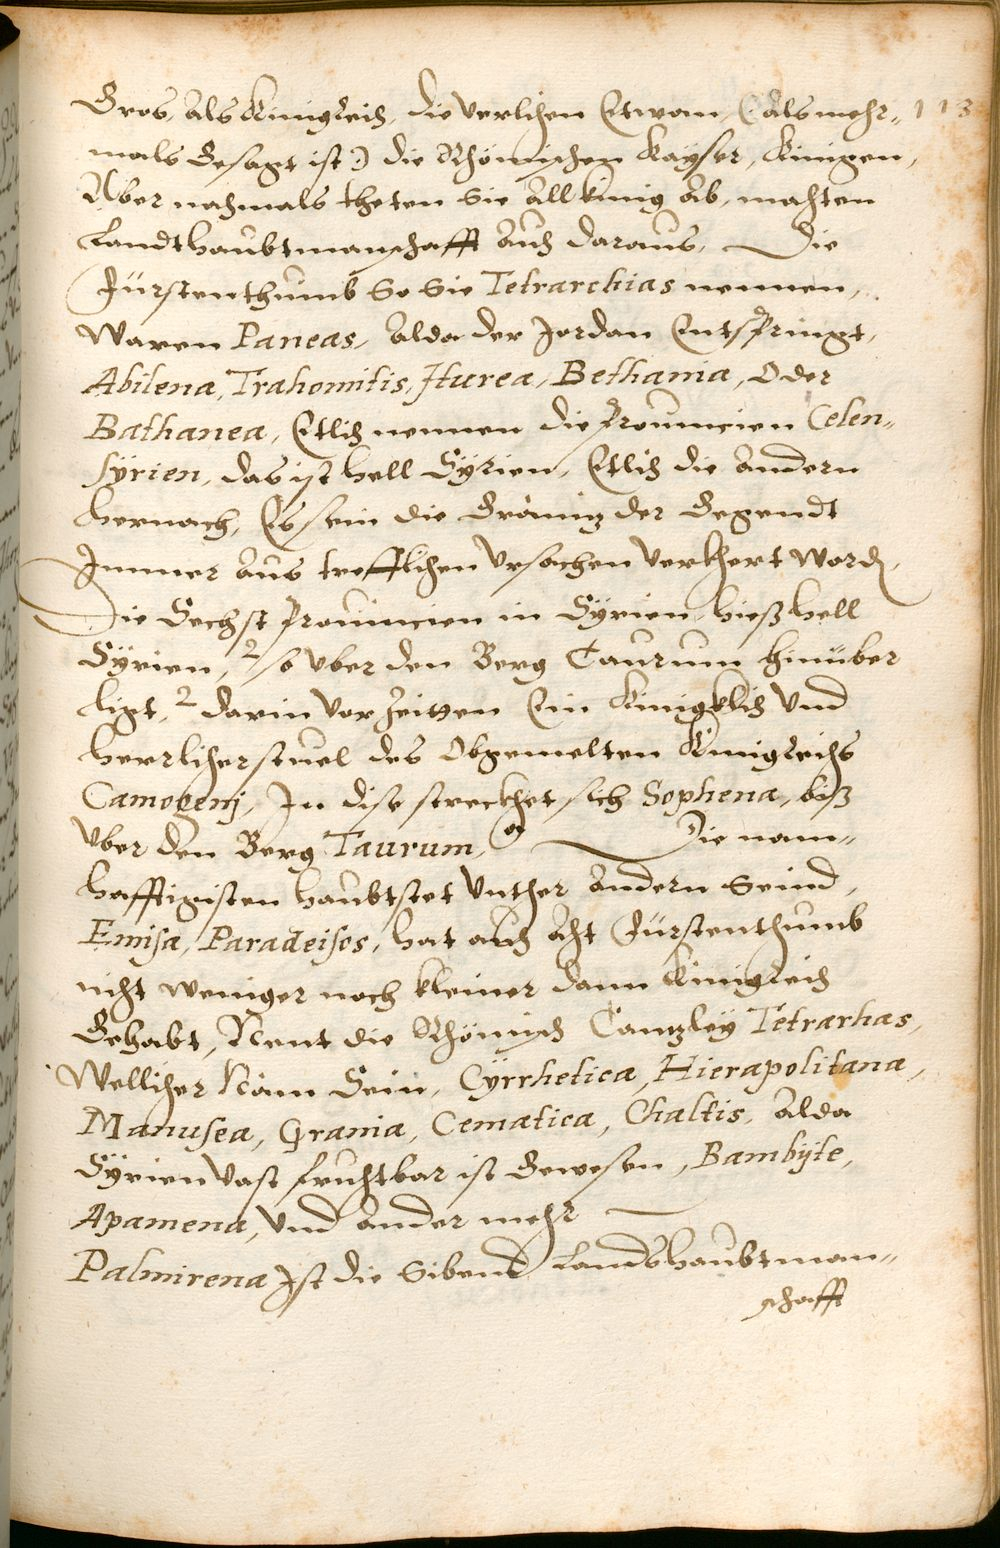 Gros, als Kinigreich, die verlihen Etwan, (: als mehr- 113
mals Gesagt ist :) die Rhömischen Kayser, Kinigen,
Aber nachmals theten Sie all kinig ab, machten
Landthaubtmanschafft Auch daraus, Die
Fürstenthumb So Sie Tetrarchias nennen,
Waren Paneas, Alda der Jordan Entspringt,
Abilena, Trahonnitis, Iturea, Bethania, Oder
Bathanea, Etlich nennen die Prouincien Celen-
sÿrien, das ist hell Sÿrien, Etlich die andern
hernach, Es sein die Gräniz der Gegendt
Immer aus trefflichen Vrsachen verkhert word,
Die Sechst Prouincien in Sÿrien, hieß hell
Sÿrien, 2 so vber den Berg Taurum hinüber
ligt, 2 darin vor Zeitten Ein Kinigklich Vnd
herrlicher stuel des Obgemelten Kinigreichs
Camogenj, In dise streckhet sich Sophena, biß
vber den Berg Taurum, Die nam-
hafftigisten haubtstet Vnther andern Seind,
Emisa, Paradeisos, hat auch Acht Fürstenthumb
nicht weniger noch kleiner dann Kinigreich
Gehabt, Nent die Rhömisch Canzleÿ Tetrarhas,
Wellicher Nam Sein, Cÿrrhetica, Hierapolitana,
Manusea, Grania, Cematica, Chaltis, Alda
Sÿrien Vast fruchtbar ist Gewesen, Bambÿle,
Apamena, Vnd ander mehr
Palmirena Ist die Sibend Landshaubtman-
schafft